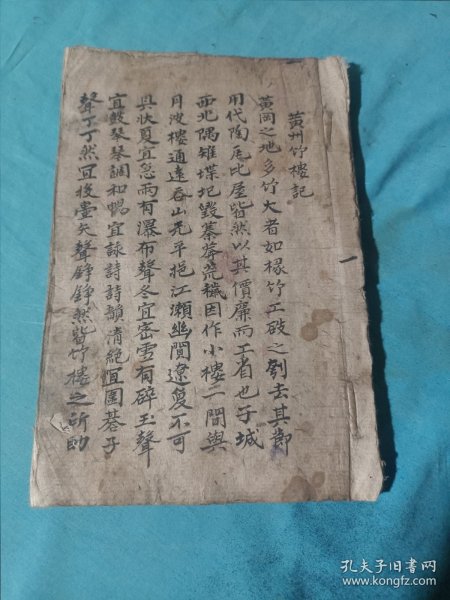 黃州竹樓記
黃岡之地多竹大者如椽竹工破之刳去其節
用代陶瓦比屋皆然以其價廉而工省也子城
西北隅雉堞圮毀蓁莽荒穢因作小樓一間與
月波樓通遠吞山光平挹江瀨幽闃遼敻不可
具狀夏宜急雨有瀑布聲冬宜密雪有碎玉聲
宜鼓琴琴調和暢宜詠詩詩韻清絕宜圍碁子
聲丁丁然宜投壺矢聲錚錚然皆竹樓之所助
一
孔夫子旧书网
www.kongfz.com